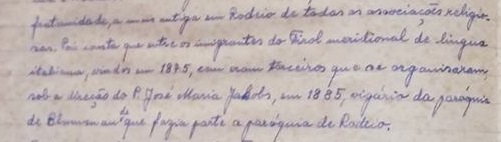 fraternidade, a mais antiga em Rodeio de todas as associações religio-
sas. Poi consta que entre os imigrantes do Tirol meritional de lingua
italiana, vindos em 1875, eram terceiros que se organisaram,
sob a direcção do P. José Maria Jakobs, em 1885, vigário da paróquia
de Blumenau que fazia parte a paróquia de Rodeio.